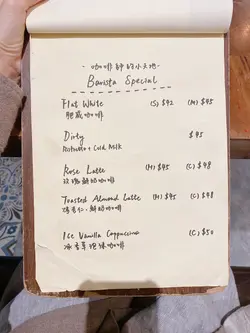 - 咖啡師的小天地 -
Barista Special
Flat White (S) $42 (M) $45
馥芮咖啡
Dirty $45
Ristretto + Cold Milk
Rose Latte (H) $45 (C) $48
玫瑰鮮奶咖啡
Toasted Almond Latte (H) $45 (C) $48
烤杏仁鮮奶咖啡
Ice Vanilla Cappuccino (C) $50
冰香草泡沫咖啡